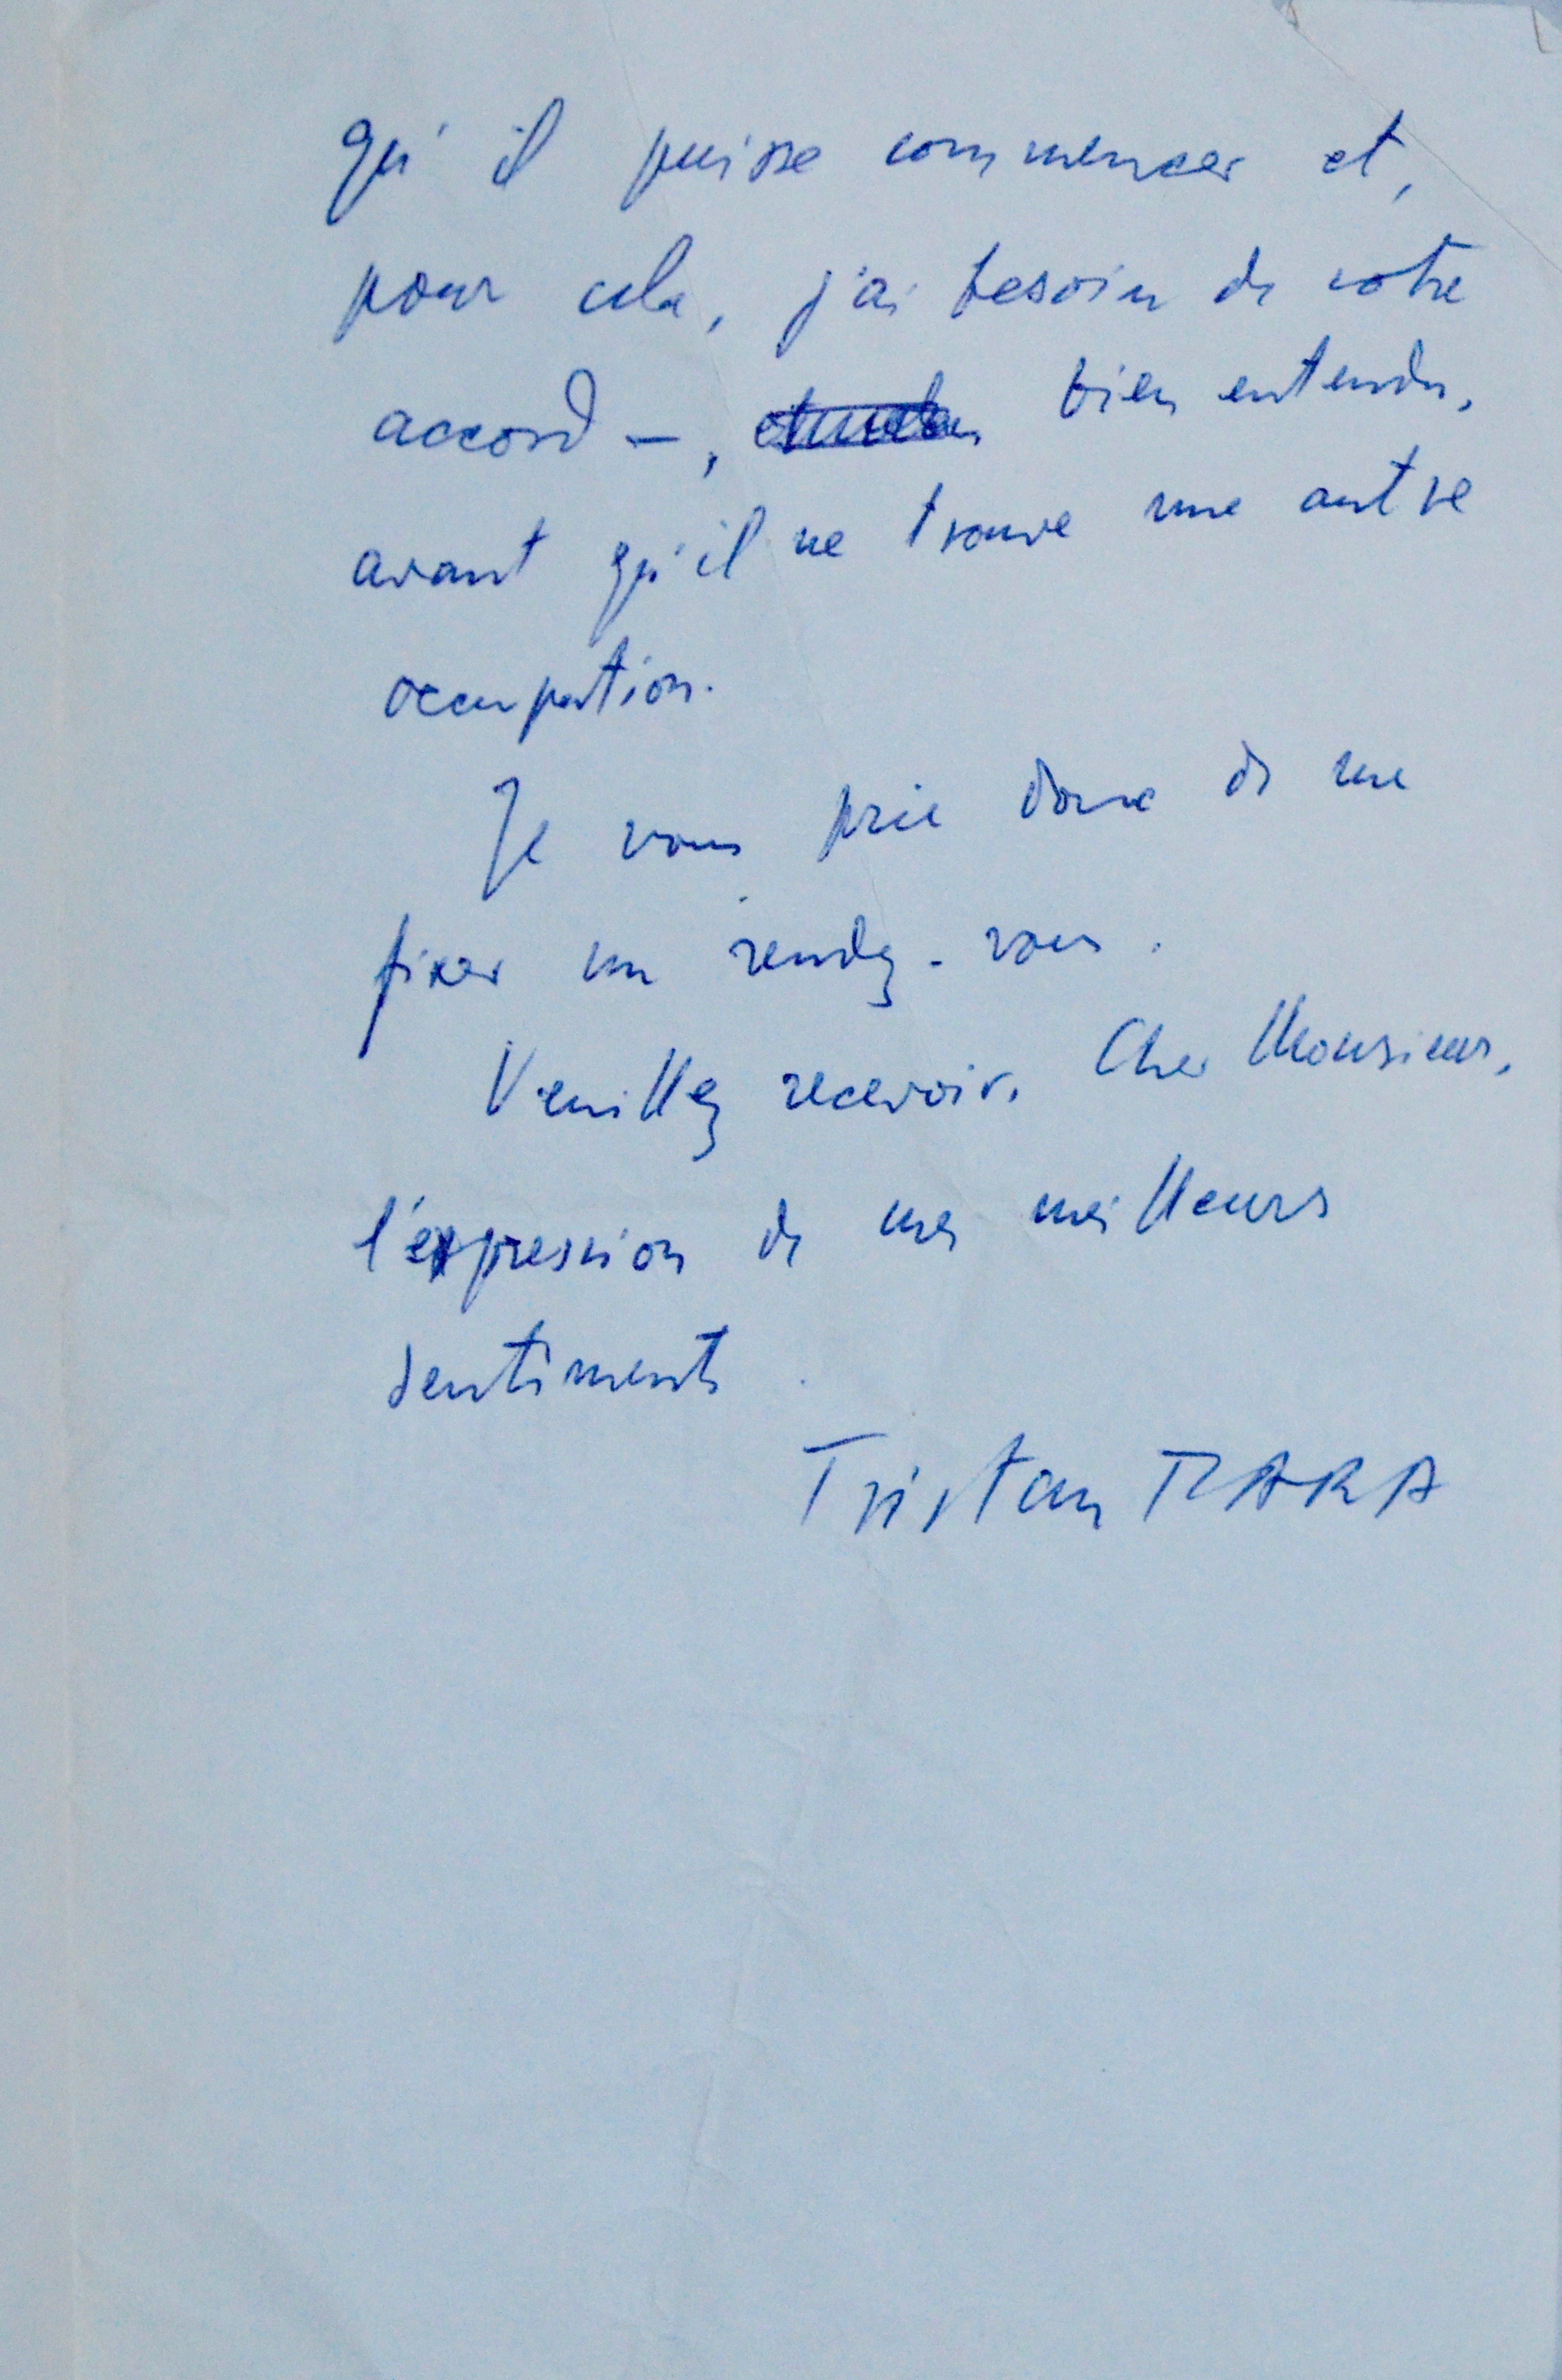 qu'il puisse commencer et,
pour cela, j'ai besoin de votre
accord —, bien entendu,
avant qu'il ne trouve une autre
occupation.
Je vous prie donc de me
fixer un rendez-vous.
Veuillez recevoir, Cher Monsieur,
l'expression de mes meilleurs
sentiments.
Tristan TZARA